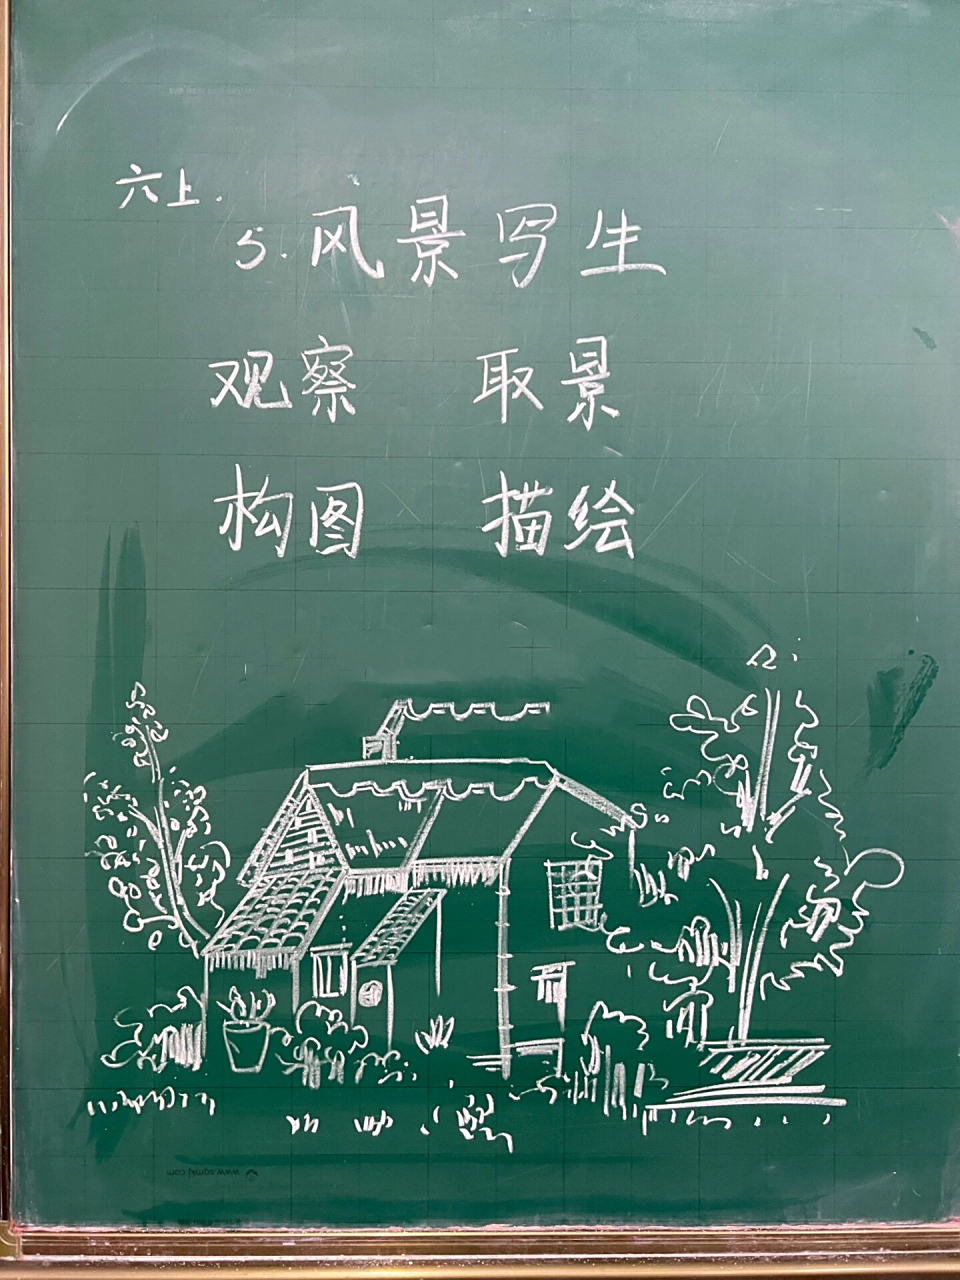 六上.
5.风景写生
观察 取景
构图 描绘
www.sqmkj.com